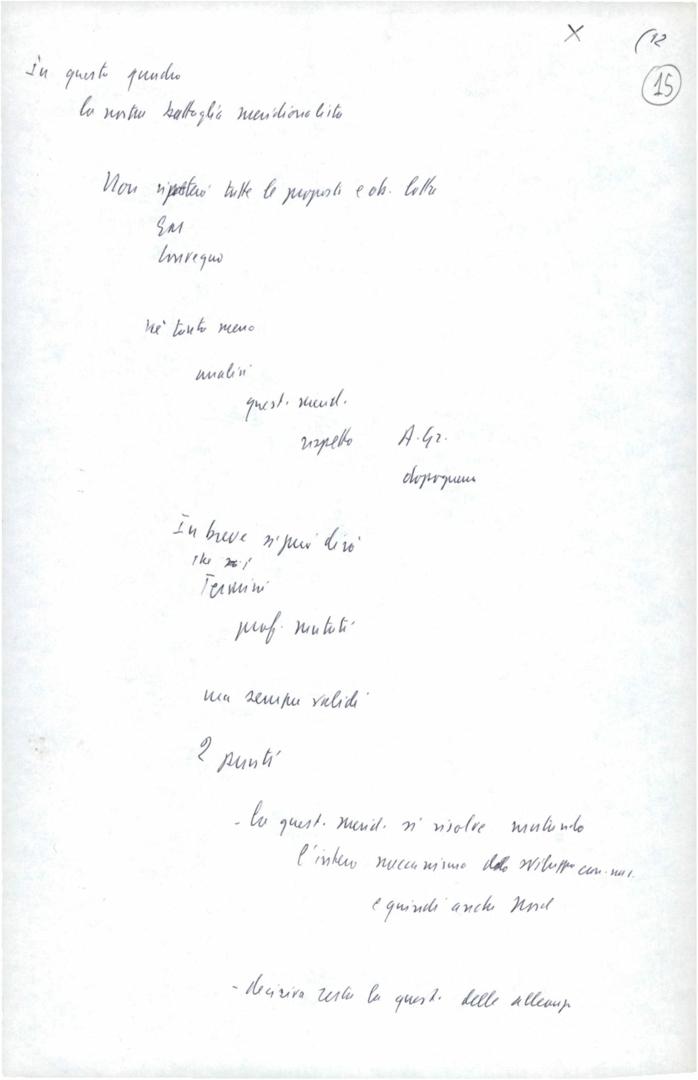 X (12
15
In questo quadro
la nostra battaglia meridionalista
Non ripeterò tutte le proposte e ob. lotta
Convegno
né tanto meno
analisi
quest. merid.
rispetto A. Gr.
dopoguerra
In breve si può dire
che
Termini
prof. mutati
ma sempre validi
2 punti
- la quest. merid. si risolve mutando
l'intero meccanismo dello sviluppo
e quindi anche Nord
- decisiva resta la quest. delle alleanze